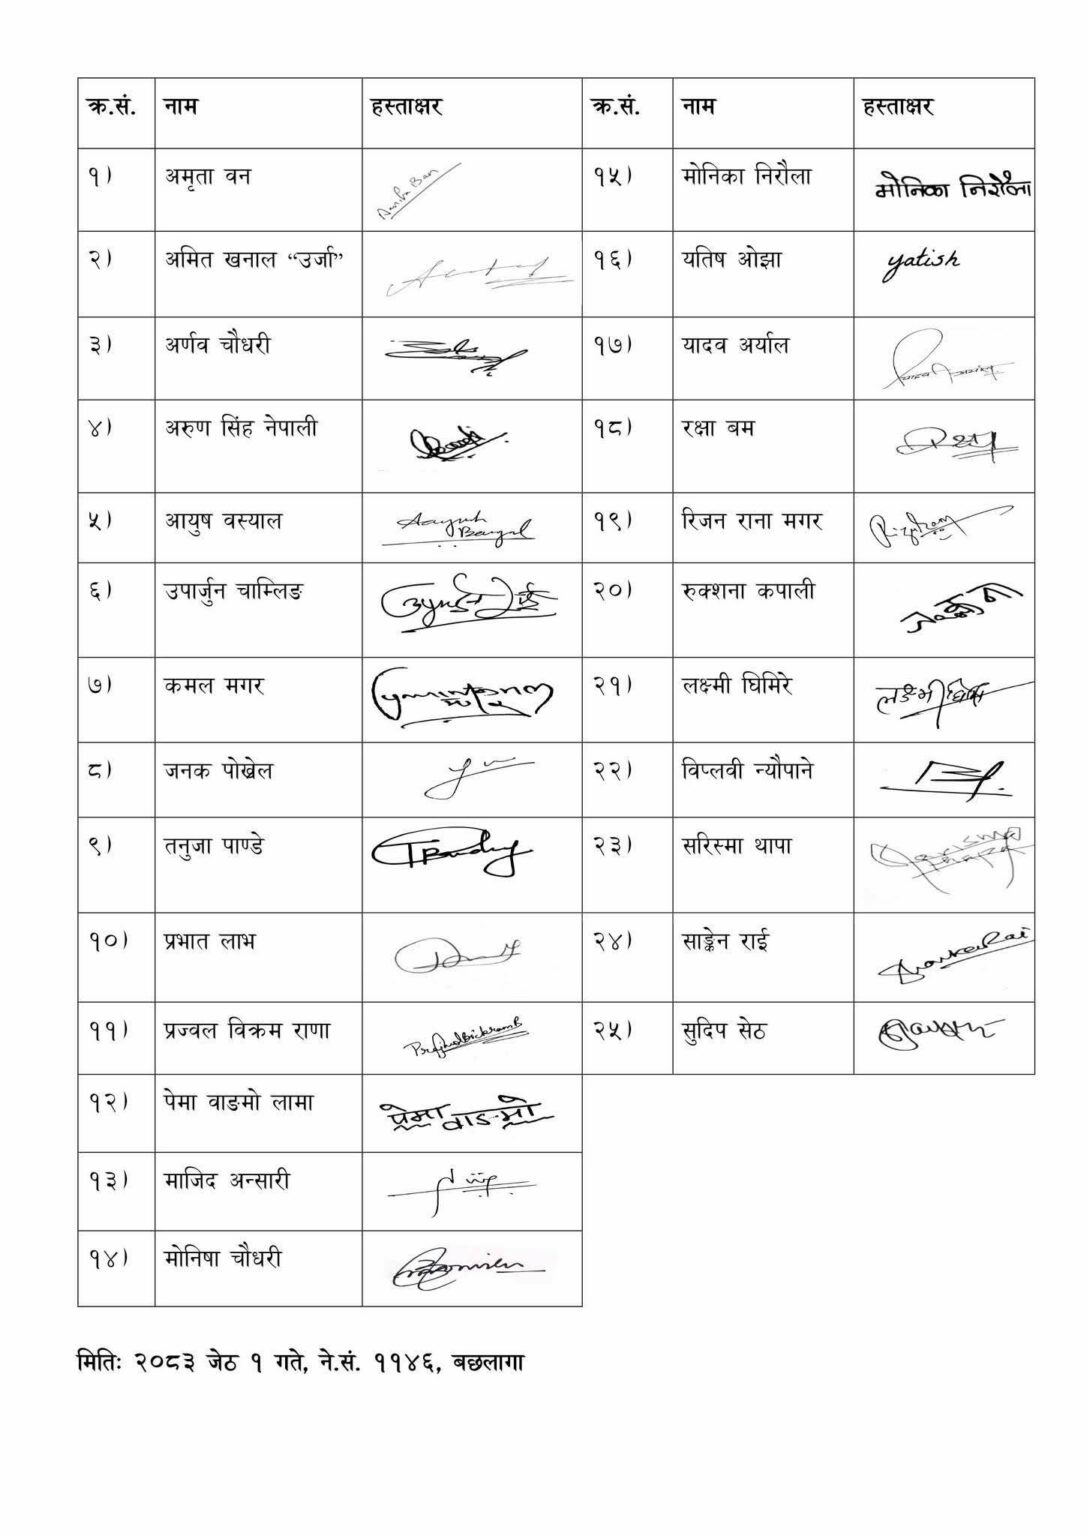 क्र.सं. नाम हस्ताक्षर क्र.सं. नाम हस्ताक्षर
१) अमृता वन Amrita Ban १५) मोनिका निरौला मोनिका निरौला
२) अमित खनाल “उर्जा” १६) यतिष ओझा yatish
३) अर्णव चौधरी १७) यादव अर्याल
४) अरुण सिंह नेपाली १८) रक्षा बम
५) आयुष वस्याल Aayush १९) रिजन राना मगर
६) उपार्जुन चाम्लिङ २०) रुक्शना कपाली
७) कमल मगर २१) लक्ष्मी घिमिरे
८) जनक पोख्रेल २२) विप्लवी न्यौपाने
९) तनुजा पाण्डे २३) सरिस्मा थापा
१०) प्रभात लाभ २४) साङ्केन राई
११) प्रज्वल विक्रम राणा २५) सुदिप सेठ
१२) पेमा वाङमो लामा पेमा वाङमो
१३) माजिद अन्सारी
१४) मोनिषा चौधरी
मितिः २०८३ जेठ १ गते, ने.सं. ११४६, बछलागा